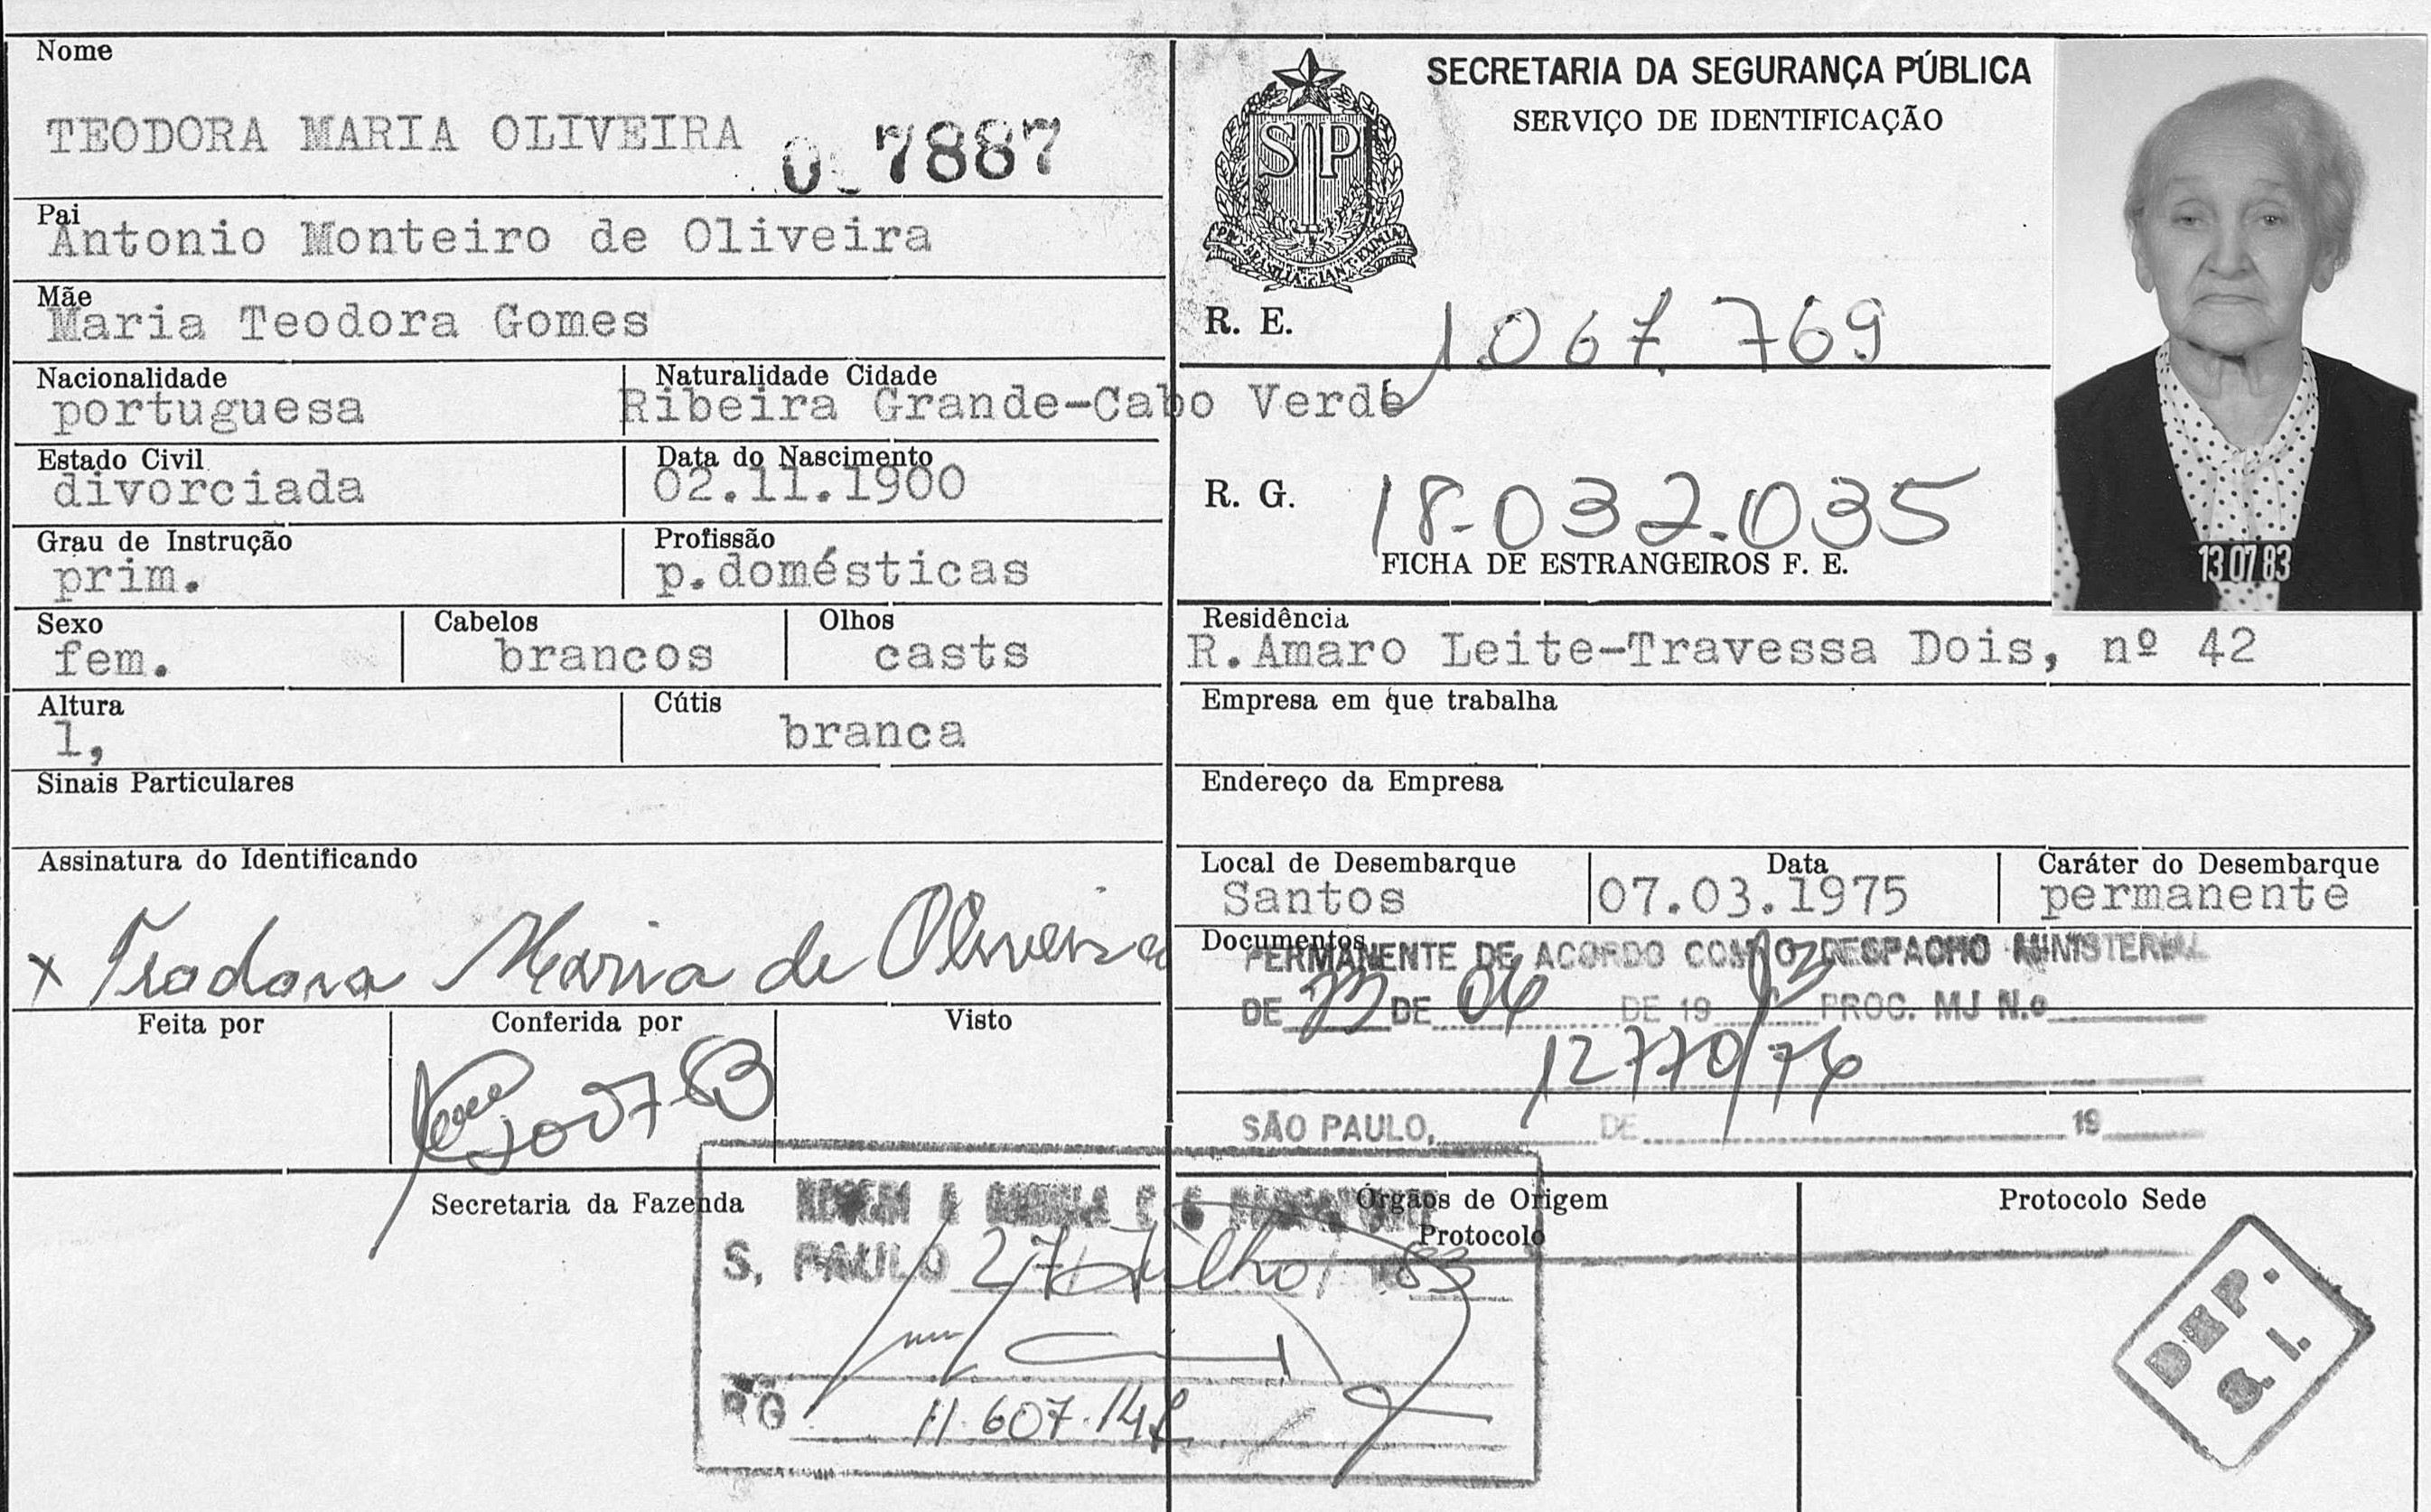 Nome
TEODORA MARIA OLIVEIRA
0 7887
Pai
Antonio Monteiro de Oliveira
Mãe
Maria Teodora Gomes
Nacionalidade
portuguesa
Naturalidade Cidade
Ribeira Grande-Cabo Verde
Estado Civil
divorciada
Data do Nascimento
02.11.1900
Grau de Instrução
prim.
Profissão
p.domésticas
Sexo
fem.
Cabelos
brancos
Olhos
casts
Altura
1,
Cútis
branca
Sinais Particulares
Assinatura do Identificando
x Teodora Maria de Oliveira
Feita por
Conferida por
Visto
SECRETARIA DA SEGURANÇA PÚBLICA
SERVIÇO DE IDENTIFICAÇÃO
SP
R. E. 1.067.769
R. G. 18.032.035
FICHA DE ESTRANGEIROS F. E.
13 07 83
Residência
R.Amaro Leite-Travessa Dois, nº 42
Empresa em que trabalha
Endereço da Empresa
Local de Desembarque
Santos
Data
07.03.1975
Caráter do Desembarque
permanente
Documentos
PERMANENTE DE ACORDO COM O DESPACHO MINISTERIAL
DE 23 DE 06 DE 19 83 PROC. MJ N.o
12770/76
SÃO PAULO, DE 19
Secretaria da Fazenda
Órgãos de Origem
Protocolo
Protocolo Sede
S. PAULO 27 Julho 83
RG 11.607.141
DEP.